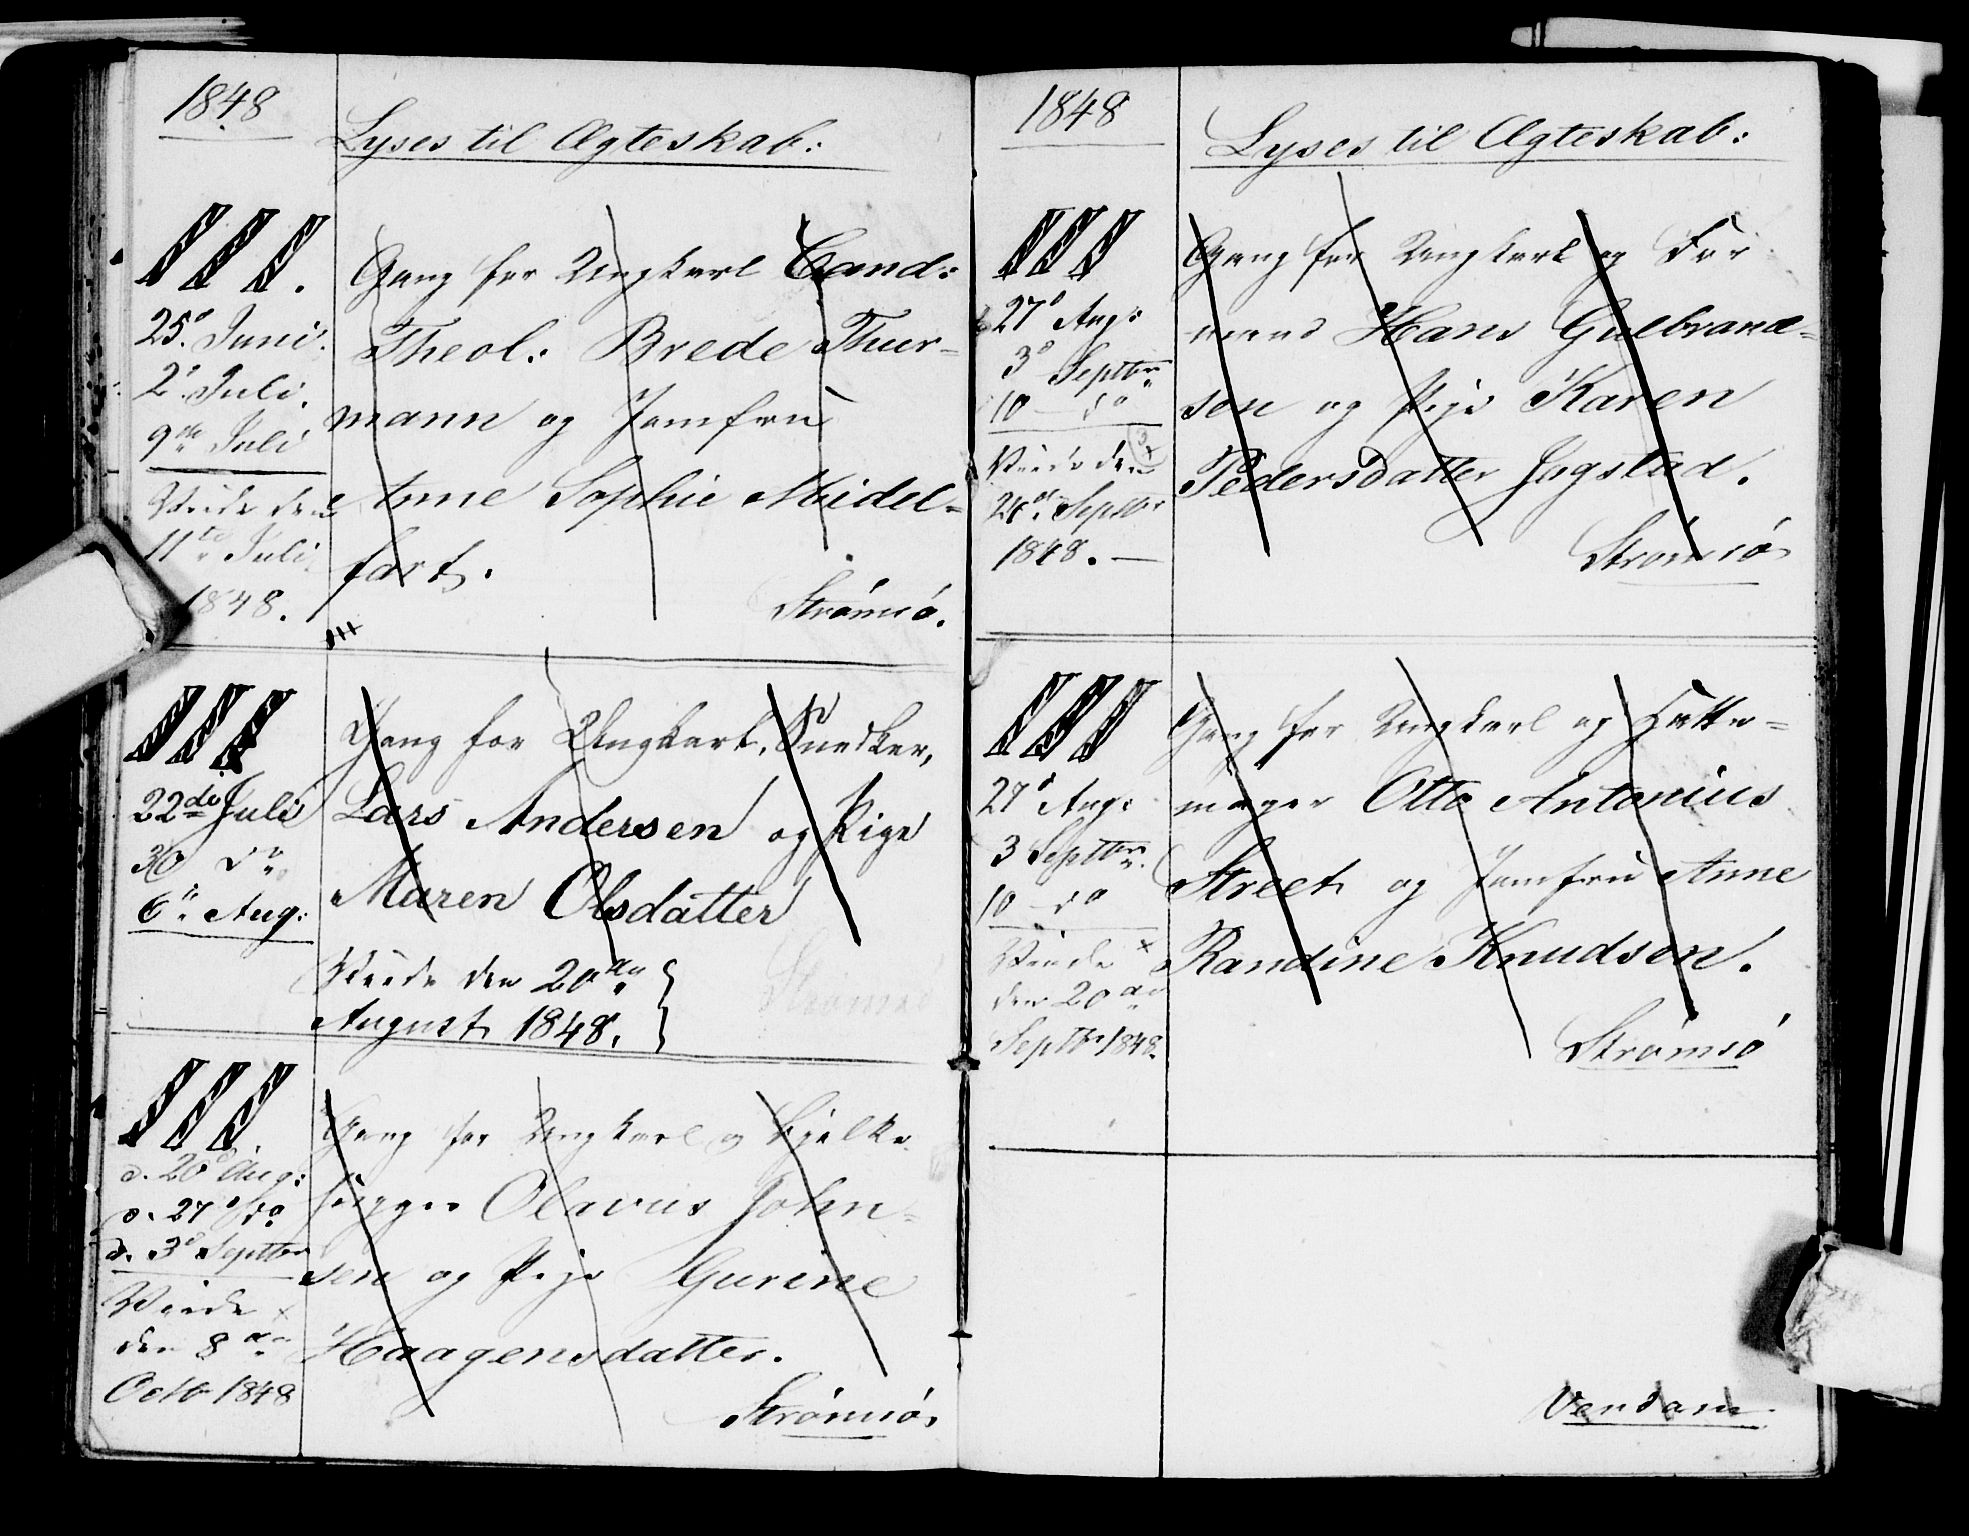 1848
Lyses til Ægteskab:
III.
25.d Juni.
2.d Juli.
9de Juli
Viede den
11te Juli
1848.
Gang for Ungkarl Cand:
Theol: Brede Thur-
mann og Jomfru
Anne Sophie Midel-
fart.
Strömsö.
III
22de Juli
30 do
6te Aug:
Gang for Ungkarl, Snedker,
Lars Andersen og Pige
Maren Olsdatter
Viede den 20de
August 1848.
Strömsö
III.
d. 20d Aug:
d. 27d do
d. 3d Septbr
Viede
den 8de
Octb 1848
Gang for Ungkarl og Bjelke
hugger Olavus John-
sen og Pige Gurine
Haagensdatter.
Strömsö.
1848
Lyses til Ægteskab:
III
27d Aug:
3d Septbr
10 do
Viede den
26de Septbr
1848.
Gang for Ungkarl og For
mand Hans Gulbrand-
sen og Pige Karen
Pedersdatter Jogstad.
Strömsö
III
27d Aug:
3 Septbr.
10 do
Viede
den 20de
Septbr 1848.
Gang for Ungkarl og Hatte-
mager Otto Antonius
Street og Jomfru Anne
Randine Knudsen.
Strömsö
Vendom